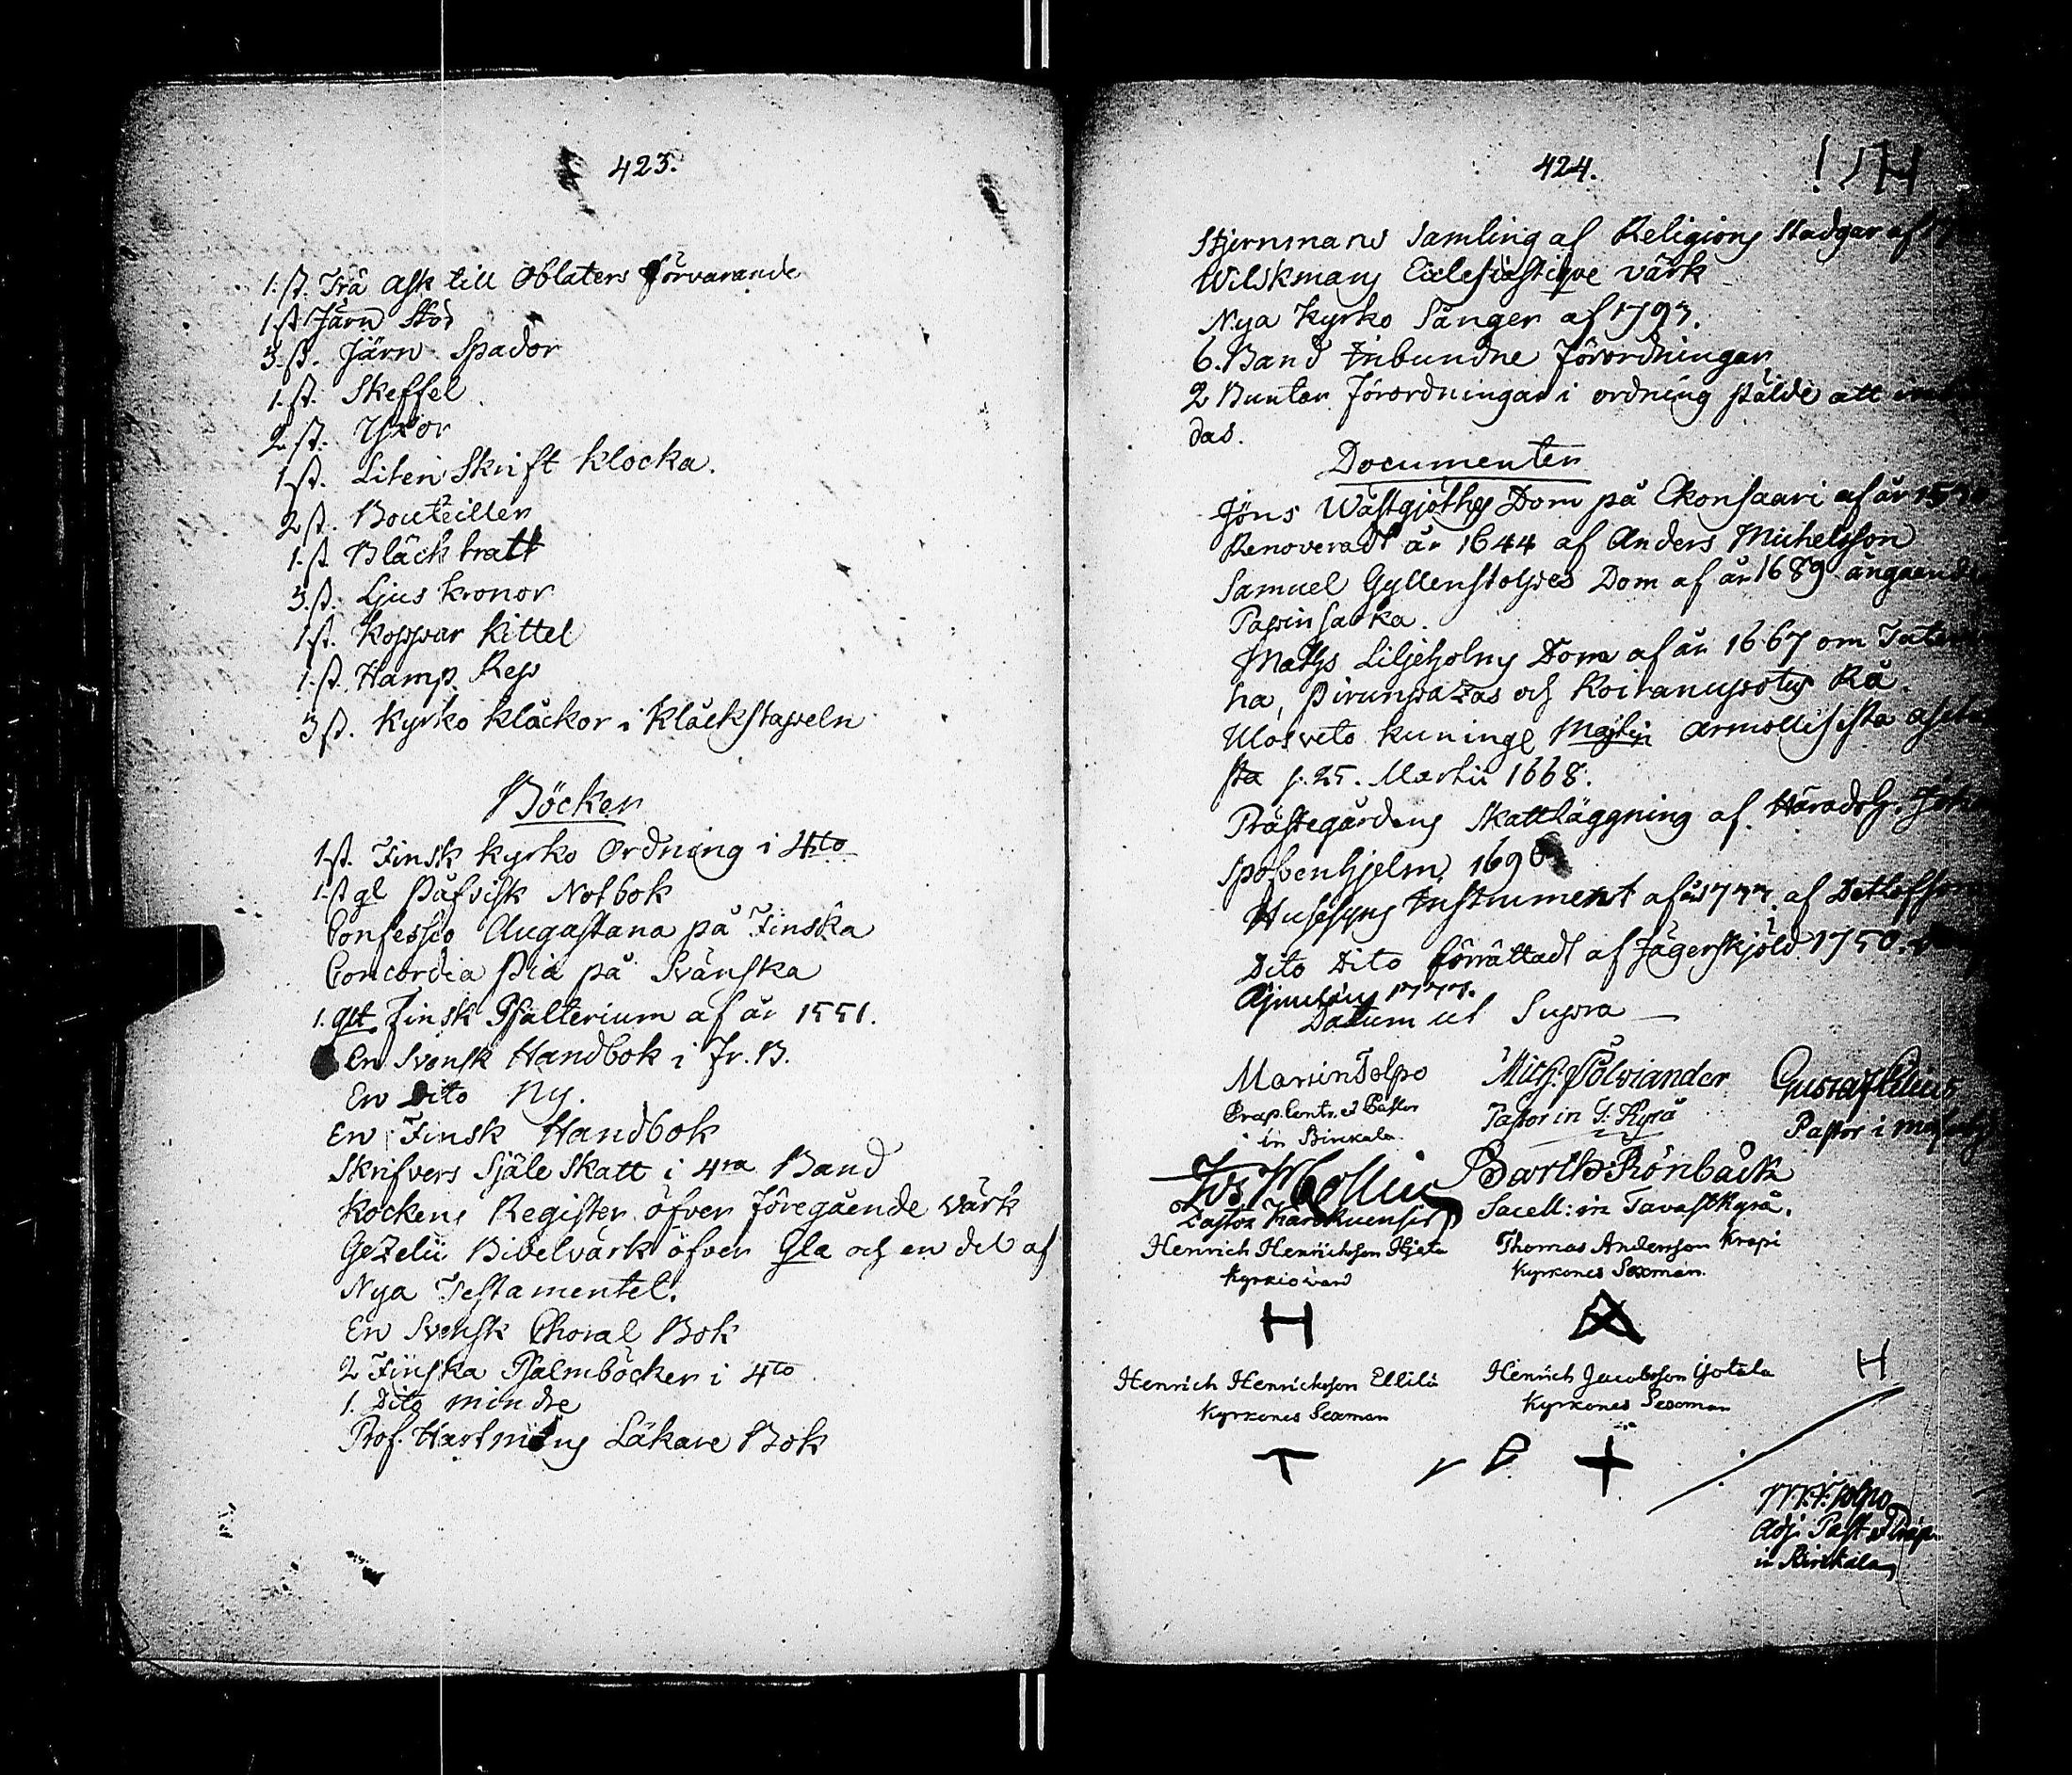 423.
1. st. Trä ask till Oblaters förvarande
1 st Järn Stör
3. st. Järn Spador
1. st. Skeffel
2 st. Yxor
1 st. Liten Skrift klocka.
2 st. Bouteiller
1. st Bläck tratt
3. st. Ljus kronor
1 st. Koppar kittel
1. st. Hamp Rep
3 st. Kyrko klåckor i klåckstapeln
Böcker
1 st. Finsk kyrko Ordning i 4to
1. st gl Påfvisk Notbok
Confessio Augastana på Finska
Concordia Pia på Svänska
1. glt Finsk Psalterium af år 1551.
En Svensk Handbok i Fr. B.
En Dito Ny.
En Finsk Handbok
Skrifvers Själe Skatt i 4ra Band
Kockens Register öfver föregående värk
Gezelii Bibelvärk öfver Gla och en del af
Nya Testamentet.
En Svensk Choral Bok
2 Finska Psalmböcker i 4to
1. Dito mindre
Prof. Hartmans Läkare Bok
424.
Stjernmans Samling af Religions Stadgar af
Wilskmans Ecclesiastique värk
Nya Kyrko Sånger af 1793.
6. Band Inbundne Förordningar
2 Buntar Förordningar i ordning stälde att
das.
Documenter
Jöns Wästgjöthes Dom på Ekonsaari af år
Renoveradt år 1644 af Anders Michelsson
Samuel Gyllenstolpes Dom af år 1689 angående
Papinsarka.
Maths Liljeholms Dom af år 1667 om
ha, Pirunpazas och Koiranupotus Rå.
Ulosveto kuningl Maj:tin armollisesta
sta p. 25. Martii 1668.
Prästegårdens Skattläggning af Häradsh.
Spofvenhjelm 1690
Husesyns Instrument af år 1737 af Detlofsson
Dito Dito förrättadt af Jägerskjöld 1750.
1777.
Datum ut Supra
Marsin Tolpo
Præp. Contr. et Pastor
in Birkala
Mich: Polviander
Pastor in T: Kyrå
Gustaf
Pastor i
Barth: Rönbäck
Pastor Karkkuensis
Sacell: in Tavastkyrå.
Henrich Henrichsson Hjeta
Kyrkiovärd
Thomas Andersson Krapi
Kyrkones Sexman.
H
Henrich Henrichsson Ellilä
Kyrkones Sexman
Henrich Jacobsson
Kyrkones Sexman
H
Tolpo
Adj. Past et Præp.
in Birckala